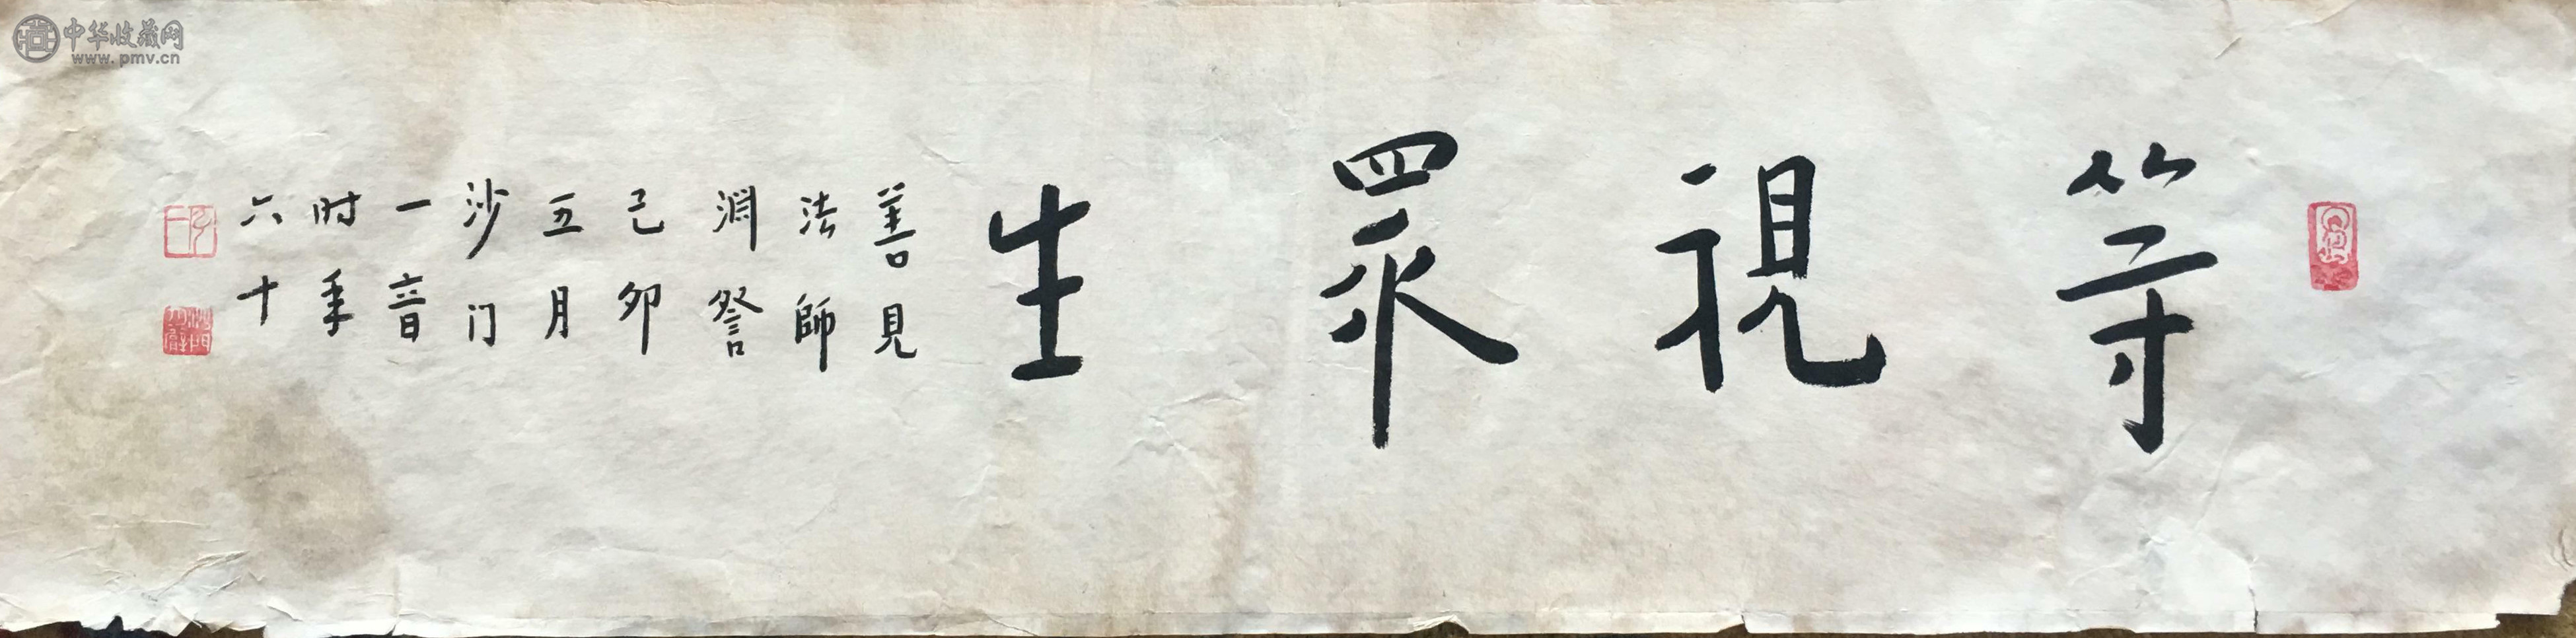 等視眾生
善見
法師
淵詧
己卯
五月
沙门
一音
时年
六十
中华收藏网
www.pmv.cn